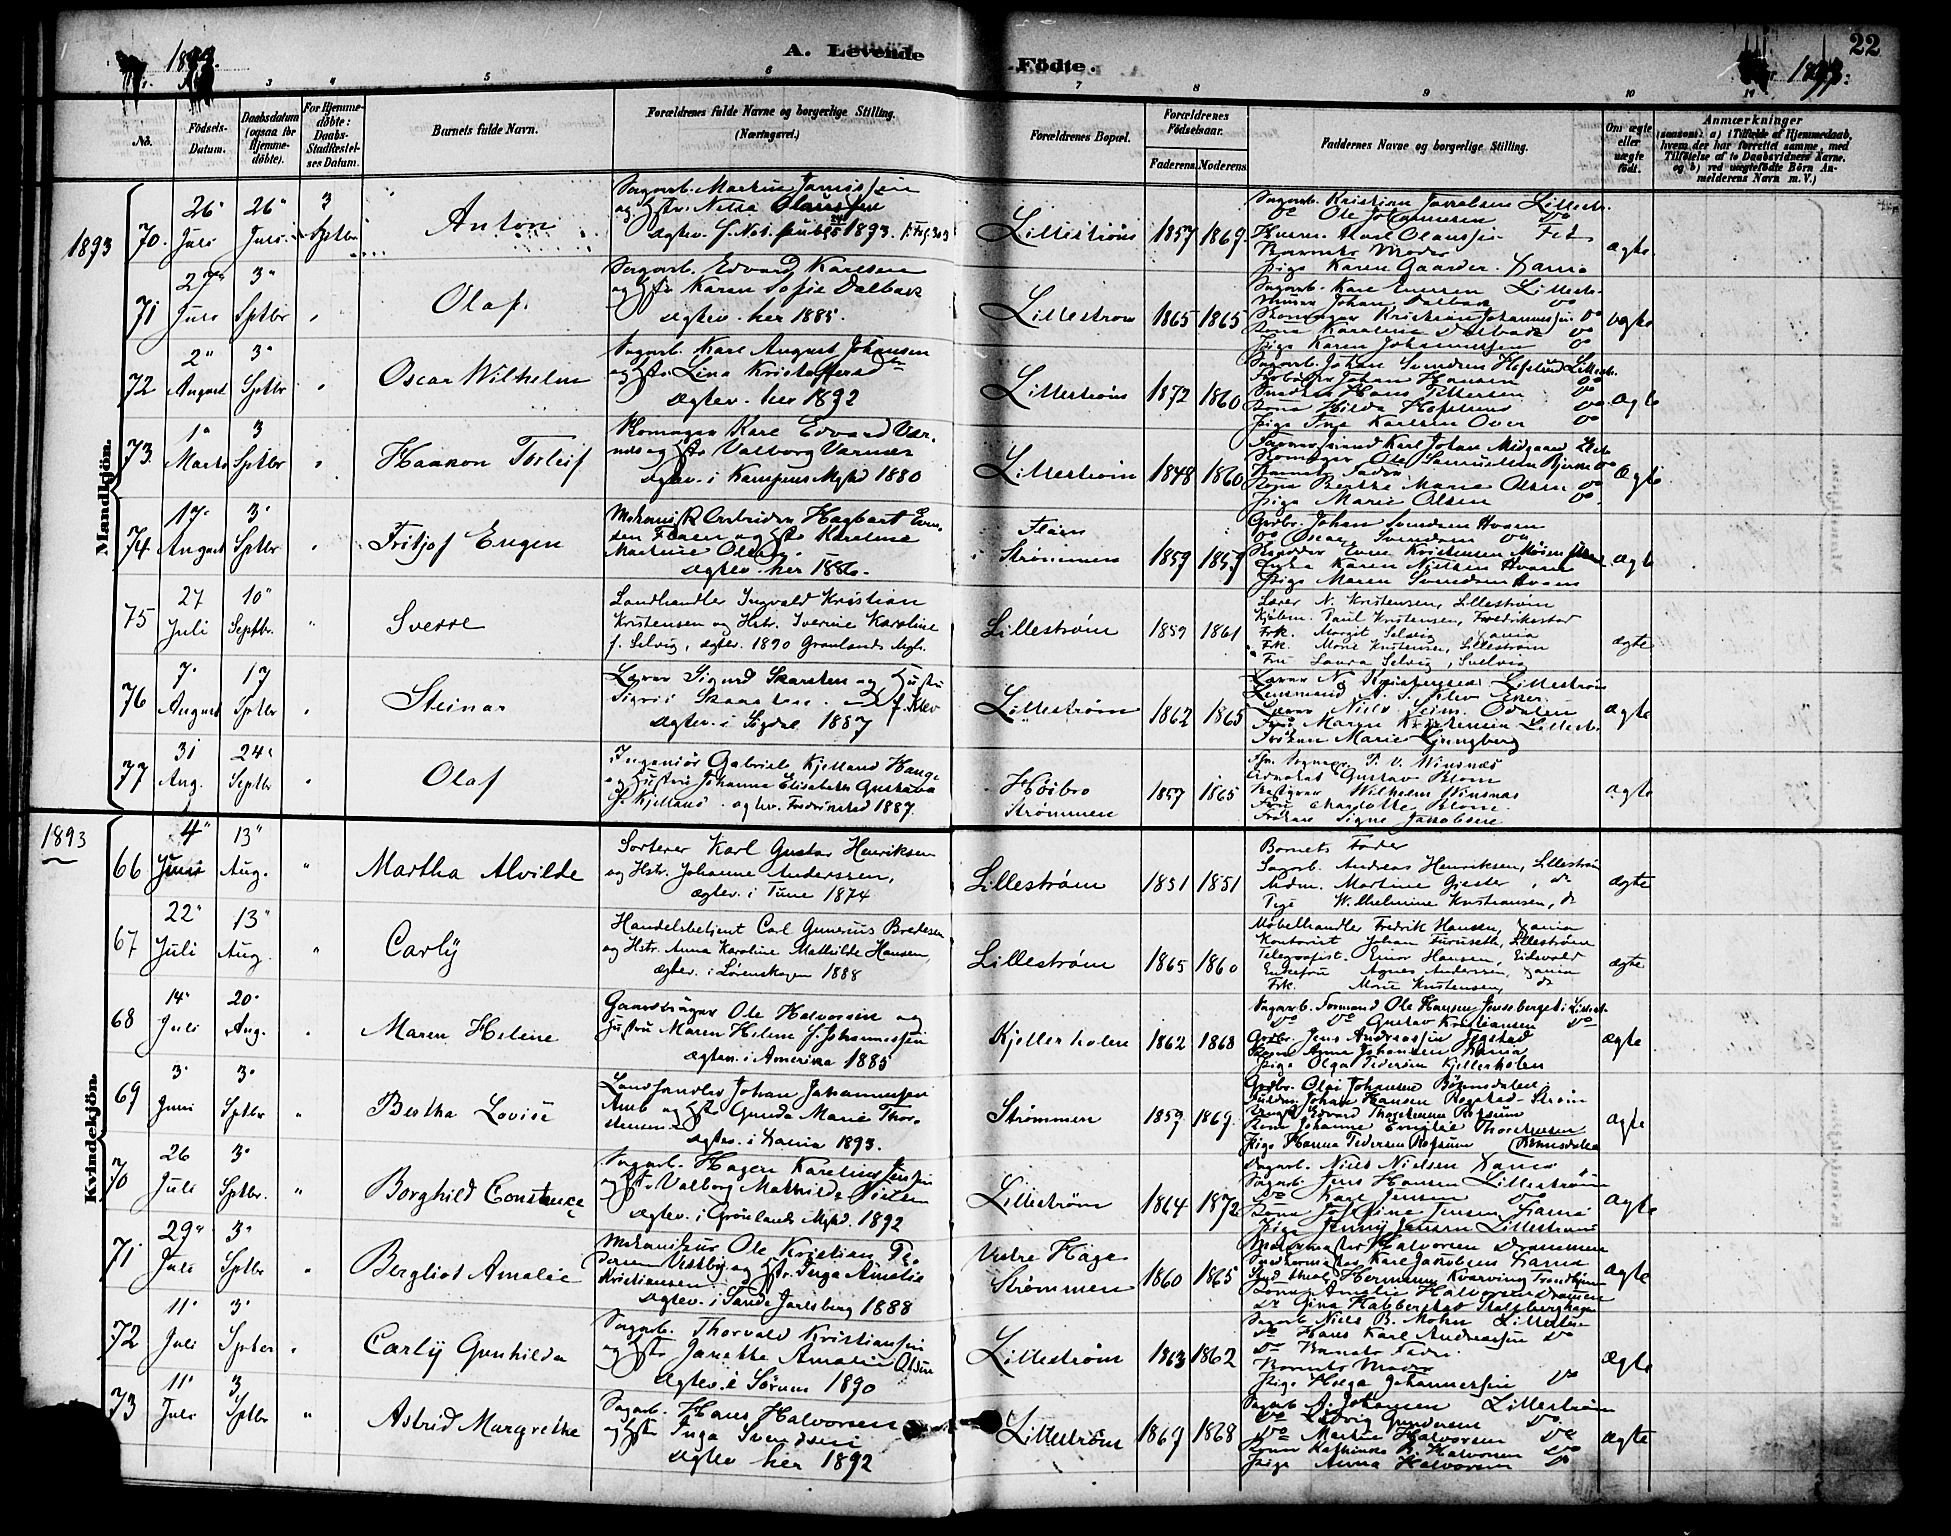 1893.
A. Levende
Födte.
22
1893.
3 4 5 6 7 8 9 10
No.
Födsels-Datum.
Daabsdatum (ogsaa for Hjemme-döbte).
For Hjemme-döbte: Daabs-Stadfæstel-ses Datum.
Barnets fulde Navn.
Forældrenes fulde Navne og borgerlige Stilling. (Næringsvei.)
Forældrenes Bopæl.
Forældrenes Födselsaar.
Faderens. Moderens.
Faddernes Navne og borgerlige Stilling.
Om ægte eller uægte födt.
Anmærkninger
(saasom: a) i Tilfælde af Hjemmedaab,
hvem der har forrettet samme, med
Tilföielse af to Daabsvidners Navne,
og b) ved uægtefödte Börn An-
melderens Navn m. V.)
Mandkjön.
1893
70. 26 Juli 26 Juli 3 Septbr Anton
Sagarb. Martin
og Hstr. Netta
ægtev. 1893.
Lilleström 1857 1869.
Sagarb. Kristian Lillestr.
do Ole Johannesen do
Karl Olaussen Fet
Barnets Moder
Pige Karen Gaarder. Xania
ægte
71 27 Juli 3 Sptbr Olaf.
Sagarb. Edvard Karlsen
og Hstr Karen Sofie Dalbak
ægtev. her 1885.
Lillestrøm 1865 1865
Sagarb. Kare Lillestr.
Johan Dalbak do
Skomager Kristian Johannessen do
Kona Karoline Dalbak do
Pige Karen Johannessen do
ægte
72 2 August 3 Sptbr Oscar Wilhelm
Sagarb. Karl August Johansen
og Hstr Lina Kristoffersd
ægtev. her 1892
Lillestrøm 1872 1860
Sagarb. Johan Svendsen Hofslund Lillestr.
Johan Hansen do
Snedker Hans Pettersen do
Kona Hilda Hofslund do
Pige Karlsen Over do
ægte
73. 1 Marts 3 Sptbr Haakon Torleif
Skomager Karl Edvard Var-
næs og Hstr Valborg Varnæs
ægtev. i Kampens Mghd 1880
Lillestrøm 1848 1860
Karl Johan Midgaard Lillestr
Skomager Ole Samuelsen Bjerke do
Barnets Fader
Kona Berthe Marie Olsen do
Pige Marie Olsen do
ægte
74 17 August 3 Sptbr Fritjof Eugen
Mekanisk Arbeider Hagbart Even-
sen Flaen og Hstr Karoline
Martine Olsen.
ægtev. her 1886.
Flaen
Strømmen 1859 1857
Grdbr. Johan Svendsen Hvam
do Oscar Svendsen do
Even Kristensen
Enke Karen Nielsen Hvam
Pige Maren Svendsen Hvam
ægte
75 27 Juli 10 Septbr. Sverre
Landhandler Ingvald Kristian
Kristensen og Hstr. Iverine Karoline
f. Selvig, ægtev. 1890 Grønlands Mgh.
Lillestrøm 1859 1861
Lærer N. Kristensen, Lillestrøm
Kjøbm. Paul Kristensen, Fredrikstad
Frk. Margit Selvig Xania
Frk. Marie Kristensen, Lillestrøm
Fru Laura Selvig, Svelvig
ægte
76 7 August 17 Sptbr Steinar
Lærer Sigurd Skarsten og Hustru
Sigrid Skarsten f. Klev
ægtev. i Sigdal 1887
Lillestrøm 1862 1865
Lærer N. Kristensen Lillestrøm
Lensmand A. S. Klev Eker
Lærer Niels Seim. Odalen
Fru Maren Kristensen Lillestr.
Frøken Marie Ljungberg
ægte
77 31 Aug. 24 Septbr Olaf
Ingeniør Gabriel Kjelland Hauge
og Hustru Johanne Elisabeth Gustava
f. Kjelland. ægtev. Fredrikstad 1887.
Høibro
Strømmen 1857 1865
Afn. Sogneprest P. V. Winsnæs
Advokat Gustav Blom
Wilhelm Winsnæs
Fru Charlotte Blom
Frøken Signe Jakobsen
ægte
Kvindekjön.
1893
66 4 Juni 13 Aug. Martha Alvilde
Sorterer Karl Gustav Henriksen
og Hstr. Johanne Anderssen,
ægtev. i Tune 1874
Lillestrøm 1851 1851
Barnets Fader
Sagarb. Andreas Henriksen, Lillestrøm
Madm. Martine Gjester, do
Pige Wilhelmine Kristiansen, do
ægte
67 22 Juli 13 Aug. Carly
Handelsbetjent Carl Gunerius Bredesen
og Hstr. Anna Karoline Mathilde Hansen,
ægtev. i Lørenskogen 1888
Lillestrøm 1865 1860
Møbelhandler Fredrik Hansen, Xania
Kontorist Johan Furuseth, Lillestrøm
Telegrafist. Einar Hansen, Eidsvold
Enkefru Agnes Andersen, Xania
Frk. Marie Kristensen, do
ægte
68 14 Juli 20 Aug. Maren Helene
Gaardbruger Ole Halvorsen og
Hustru Maren Helene f. Johannessen
ægtev. i Amerika 1885
Kjellerholen 1862 1868
Sagarb. Formand Ole Hansen Lillestr.
do do Gustav Kristiansen do
Grdbr. Jens Andreassen Jegstad
Kona Anne Johansen Xania
Pige Olga Pedersen Kjellerholen
ægte
69 3 Juni 3 Sptbr Bertha Lovise
Landhandler Johan Johannessen
og Hstr Gunda Marie Thor-
stensen
ægtev. i Xania 1893.
Strømmen 1859 1869.
Grdbr. Olai Johansen Bømsdalen
Johan Hansen Rogstad-Strøm
Edvard Thorstensen
Kona Johanne Emilie Thorstensen
Pige Hanna Pedersen
ægte
70 26 Juli 3 Sptbr. Borghild Constance
Sagarb. Hagen Karelius Jensen
og Hstr Valborg Mathilde Nielsen
ægtev. i Grønlands Mghd. 1892
Lillestrøm 1864 1872
Sagarb. Niels Nielsen Xania
Sagarb. Jens Hansen Lillestrøm
do Karl Jensen do
Kona Josefine Jensen Xania
Pige Jenny Jensen Lillestrøm
ægte
71 29 Juli 3 Sptbr Bergliot Amalie
Mekanikur Ole Kristian Pe-
dersen Vestby og Hstr. Inga Amalie
Kristiansen
ægtev. i Sande Jarlsberg 1888
Vestre Haga
Strømmen 1860 1865
Halvorsen Drammen
Karl Jacobsen Xania
Stud. theol. Hermann Kvarving Trondhjem
Kona Amalie Halvorsen Drammen
do Gina Habberstad Stalsberghagen
ægte
72 11 Juli 3 Sptbr Carly Gunhilda
Sagarb. Thorvald Kristiansen
og Hstr Janette Amalie Olsen
Ægtev. i Sørum 1890
Lillestrøm 1863 1862
Sagarb Niels B. Mohn Lillestrøm
do Hans Karl Andreassen do
do Barnets Fader
Barnets Moder
Pige Helga Johannessen do
ægte
73 11 Juli 3 Sptbr Astrid Margrethe
Sagarb. Hans Halvorsen
og Hstr Inga Svendsen
ægtev her 1892
Lillestrøm 1869 1868
Sagarb A. Johansen Lillestrøm
do Ludvig Gundersen do
do Martin Halvorsen do
Kona Kathinka Halvorsen do
Pige Anna Halvorsen do
ægte